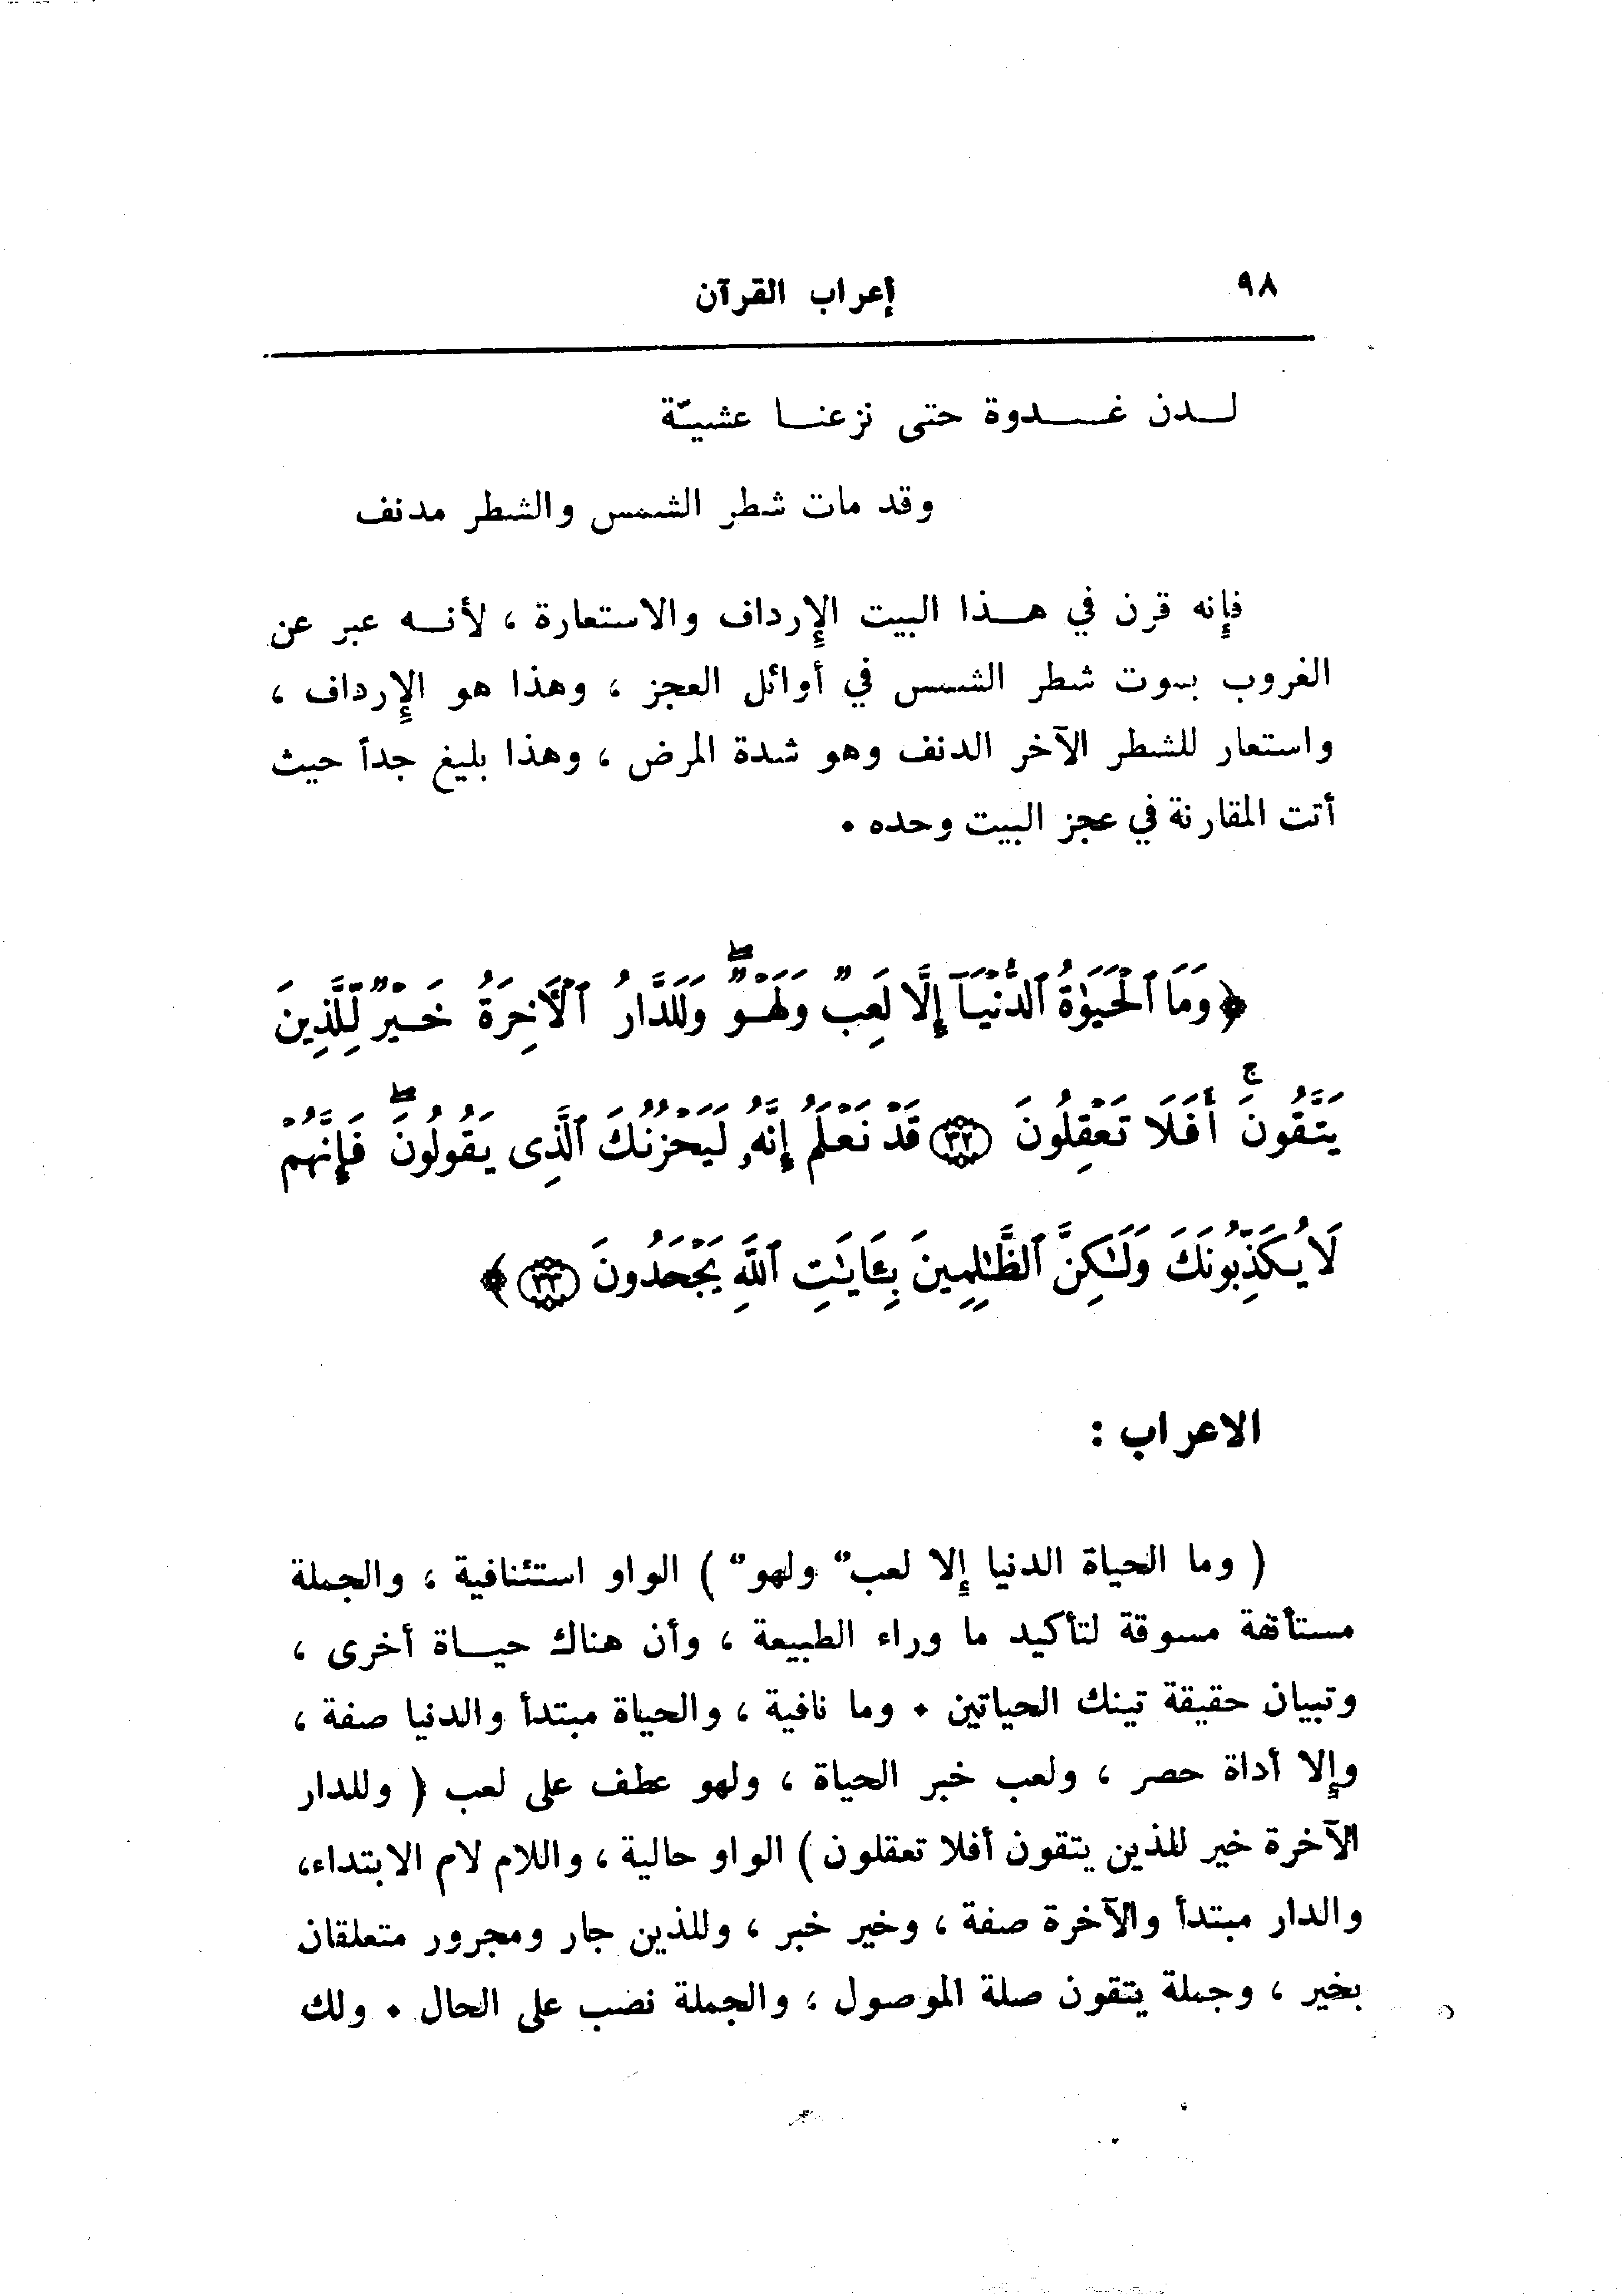 ٩٨ إعراب القرآن
لـدن غـدوة حتى نزعنـا عشيـّة
وقد مات شطر الشمس والشطر مدنف
فإنه قرن في هـذا البيت الإرداف والاستعارة ، لأنـه عبر عن
الغروب بموت شطر الشمس في أوائل العجز ، وهذا هو الإرداف ،
واستعار للشطر الآخر الدنف وهو شدة المرض ، وهذا بليغ جداً حيث
أتت المقارنة في عجز البيت وحده ٠
﴿ وَمَا ٱلْحَيَوٰةُ ٱلدُّنْيَآ إِلَّا لَعِبٌ وَلَهْوٌ ۖ وَلَلدَّارُ ٱلْأٓخِرَةُ خَيْرٌ لِّلَّذِينَ
يَتَّقُونَ ۚ أَفَلَا تَعْقِلُونَ ﴿٣٢﴾ قَدْ نَعْلَمُ إِنَّهُۥ لَيَحْزُنُكَ ٱلَّذِى يَقُولُونَ ۖ فَإِنَّهُمْ
لَا يُكَذِّبُونَكَ وَلَـٰكِنَّ ٱلظَّـٰلِمِينَ بِـَٔايَـٰتِ ٱللَّهِ يَجْحَدُونَ ﴿٣٣﴾ ﴾
الاعراب :
( وما الحياة الدنيا إلا لعبٌ ولهوٌ ) الواو استئنافية ، والجملة
مستأنفة مسوقة لتأكيد ما وراء الطبيعة ، وأن هناك حيـاة أخرى ،
وتبيان حقيقة تينك الحياتين ٠ وما نافية ، والحياة مبتدأ والدنيا صفة ،
وإلا أداة حصر ، ولعب خبر الحياة ، ولهو عطف على لعب ( وللدار
الآخرة خير للذين يتقون أفلا تعقلون ) الواو حالية ، واللام لام الابتداء،
والدار مبتدأ والآخرة صفة ، وخير خبر ، وللذين جار ومجرور متعلقان
بخير ، وجملة يتقون صلة الموصول ، والجملة نصب على الحال ٠ ولك